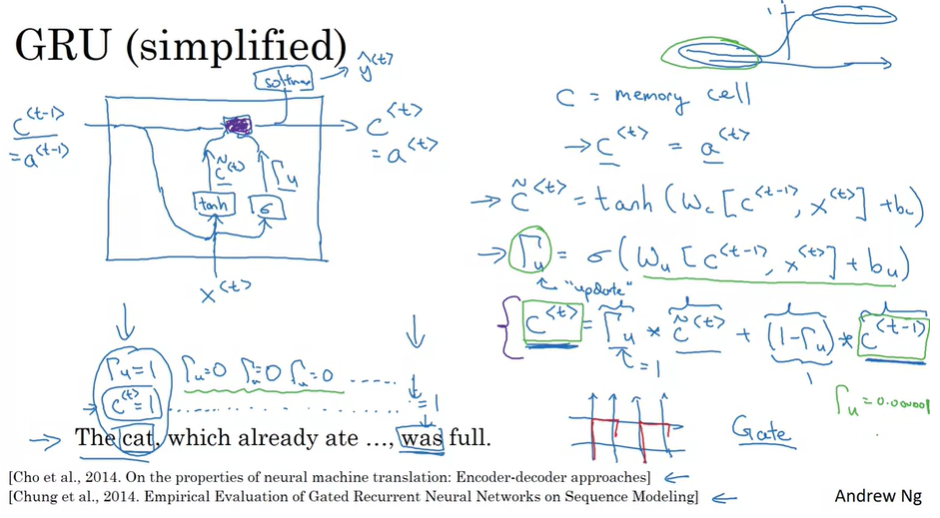 GRU (simplified)
softmax → ŷ<t>
c<t-1>
= a<t-1>
c<t>
= a<t>
c̃<t>
Γu
tanh
σ
x<t>
1
C = memory cell
→ c<t> = a<t>
→ c̃<t> = tanh (Wc [c<t-1>, x<t>] + bc)
→ Γu = σ (Wu [c<t-1>, x<t>] + bu)
"update"
c<t> = Γu * c̃<t> + (1-Γu) * c<t-1>
= 1
1
Γu = 0.000001
Gate
Γu=1 Γu=0 Γu=0 Γu=0 .....
c<t>=1 ............ =1
→ The cat, which already ate …, was full.
[Cho et al., 2014. On the properties of neural machine translation: Encoder-decoder approaches] ←
[Chung et al., 2014. Empirical Evaluation of Gated Recurrent Neural Networks on Sequence Modeling] ←
Andrew Ng